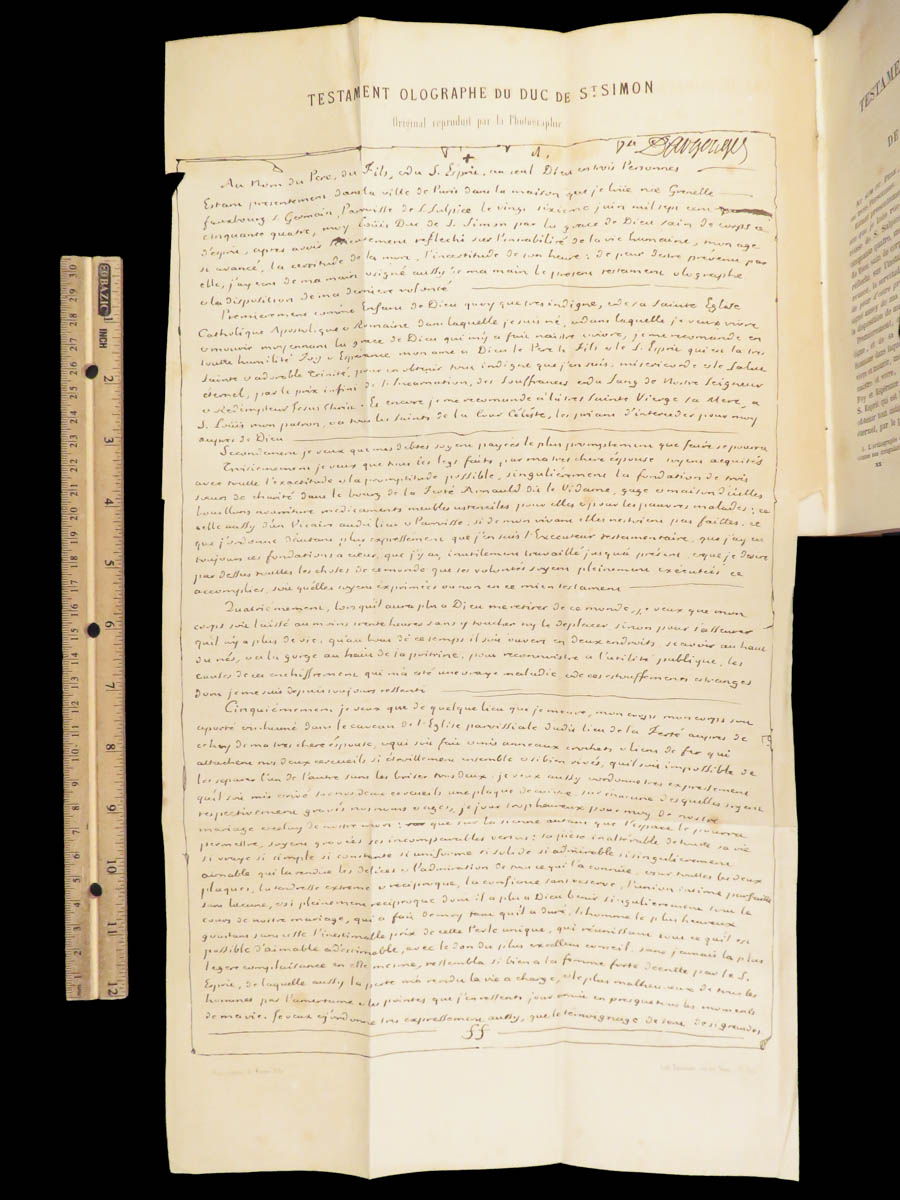 TESTAMENT OLOGRAPHE DU DUC DE S.T SIMON
Original reproduit par la Photographie
Au Nom du Pere, du Fils, et du S. Esprit, un seul Dieu en trois Personnes
Estant presentement dans la ville de Paris dans la maison que je loüe rüe Grenelle
fauxbourg S. Germain, Parroisse de S. Sulpice le vingt sixieme juin mil sept cent
cinquante quatre, moy Loüis Duc de S. Simon par la grace de Dieu sain de corps et
d'esprit, apres avoir serieusement reflechi sur l'instabilité de la vie humaine, mon age
si avancé, la certitude de la mort, l'incertitude de son heure; de peur d'estre prevenu par
elle, j'ay escrit de ma main et signé aussy de ma main le present testament olographe
et la disposition de ma derniere volonté
Premierement comme Enfant de Dieu quoy que tres indigne, et de sa Sainte Eglise
Catholique Apostolique et Romaine dans laquelle je suis né, et dans laquelle je veux vivre
et mourir moyennant la grace de Dieu qui m'y a fait naistre et vivre, je me recomande en
toutte humilité Foy et Esperance mon ame a Dieu le Pere le Fils et le S. Esprit qui est la tres
Sainte et adorable Trinité, pour en obtenir tout indigne que j'en suis, misericorde et le Salut
eternel, par le prix infini de l'Incarnation, des Souffrances et du Sang de Nostre Seigneur
et Rédempteur Jesus Christ. Et encore je me recomande a la tres Sainte Vierge sa Mere, a
S. Loüis mon patron, et a tous les saints de la Cour Céleste, les priant d'interceder pour moy
aupres de Dieu
Secondement je veux que mes debtes soyent payées le plus promptement que faire se pourra
Troisiemement je veux que tous les legs faits par ma tres chere épouse soyent acquités
avec toutte l'exactitude et la promptitude possible, singulièrement la fondation de trois
sœurs de charité dans le bourg de la Ferté Arnauld dit le Vidame, gage et maison d'icelles
bouillons nourriture medicaments meubles ustenciles pour elles et pour les pauvres malades; et
celle aussy d'un Vicaire audit lieu et Parroisse, si de mon vivant elles n'estoient pas faittes. ce
que j'ordonne d'autant plus expressement que j'en suis l'Executeur testamentaire, que j'ay eu
toujours ces fondations a cœur, que j'y ay inutilement travaillé jusqu'à présent, et que je desire
par dessus touttes les choses de ce monde que ses volontés soyent pleinement exécutées et
accomplies, soit qu'elles soyent exprimées ou non en ce mien testament
Quatriemement, lors qu'il aura plu a Dieu me retirer de ce monde, je veux que mon
corps soit laissé au moins trente heures sans y toucher ny le deplacer sinon pour s'asseurer
qu'il n'y a plus de vie, qu'au bout de ce temps il soit ouvert en deux endroits, scavoir au haut
du nés, et a la gorge au haut de la poitrine, pour reconnoistre a l'utilité publique, les
causes de cet enchiffrement qui m'a esté une vraye maladie, et de ces estouffements estranges
dont je me suis depuis toujours ressenti
Cinquiémement je veux que de quelque lieu que je meure, mon corps mon corps soit
aporté et inhumé dans le caveau de l'Eglise parroissiale dudit lieu de la Ferté aupres de
celuy de ma tres chere épouse, et qu'il soit fait et mis anneaux crochets et liens de fer qui
attachent nos deux cercueils si étroittement ensemble et si bien rivés, qu'il soit impossible de
les separer l'un de l'autre sans les briser tous deux. je veux aussy et ordonne tres expressement
qu'il soit mis et rivé sur nos deux cercueils une plaque de cuivre, sur chacune desquelles soyent
respectivement gravés nos noms et ages, le jour trop heureux pour moy de nostre
mariage et celuy de nostre mort: que sur la sienne autant que l'espace le pourra
permettre, soyent gravées ses incomparables vertus: sa piété inaltérable de toutte sa vie
si vraye si simple si constante si uniforme si solide si admirable si singulierement
aimable qui l'a rendüe les delices et l'admiration de tout ce qui l'a connüe. et sur touttes les deux
plaques, la tendresse extreme et reciproque, la confience sans reserve, l'union intime parfaitte
sans lacune, et si pleinement reciproque dont il a plu a Dieu benir singulierement tout le
cours de nostre mariage, qui a fait de moy tant qu'il a duré, l'homme le plus heureux
goutant sans cesse l'inestimable prix de cette Perle unique, qui réunissant tout ce qu'il est
possible d'aimable et d'estimable, avec le don du plus excellent conseil, sans jamais la plus
legere complaisance en elle mesme, ressembla si bien a la femme forte decritte par le S.
Esprit, de laquelle aussy la perte m'a rendu la vie a charge, et le plus malheureux de tous les
hommes par l'amertume et les pointes que j'en ressents jour et nuit en presque tous les moments
de ma vie. Je veux et j'ordonne tres expressement aussy, que le témoignage de tout de si grandes